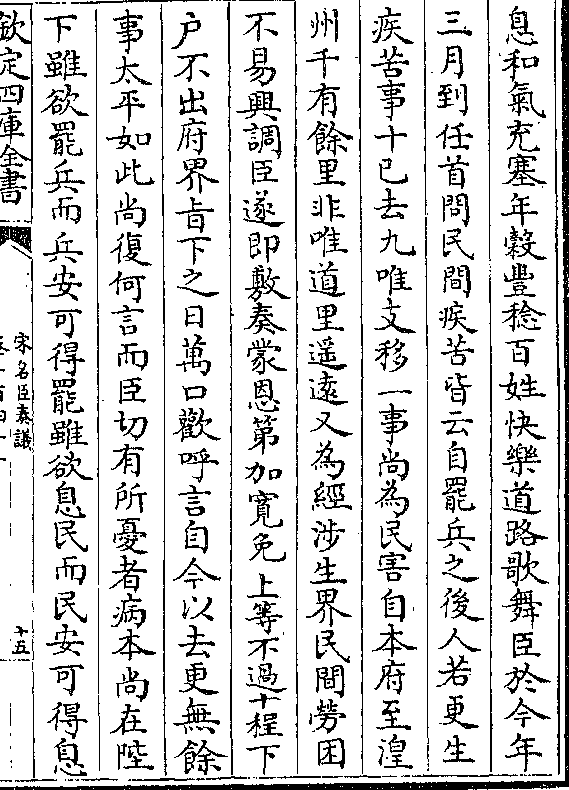 息和氣充塞年穀豐稔百姓快樂道路歌舞臣於今年
三月到任首問民間疾苦皆云自罷兵之後人若更生
疾苦事十已去九唯支移一事尚為民害自本府至湟
州千有餘里非唯道里遥逺又為經涉生界民間勞困
不易興調臣遂即敷奏蒙恩第加寛免上等不過十程下
户不出府界㫖下之日萬口歡呼言自今以去更無餘
事太平如此尚復何言而臣切有所憂者病本尚在陛
下雖欲罷兵而兵安可得罷雖欲息民而民安可得息
欽定四庫全書
宋名臣奏議
十五